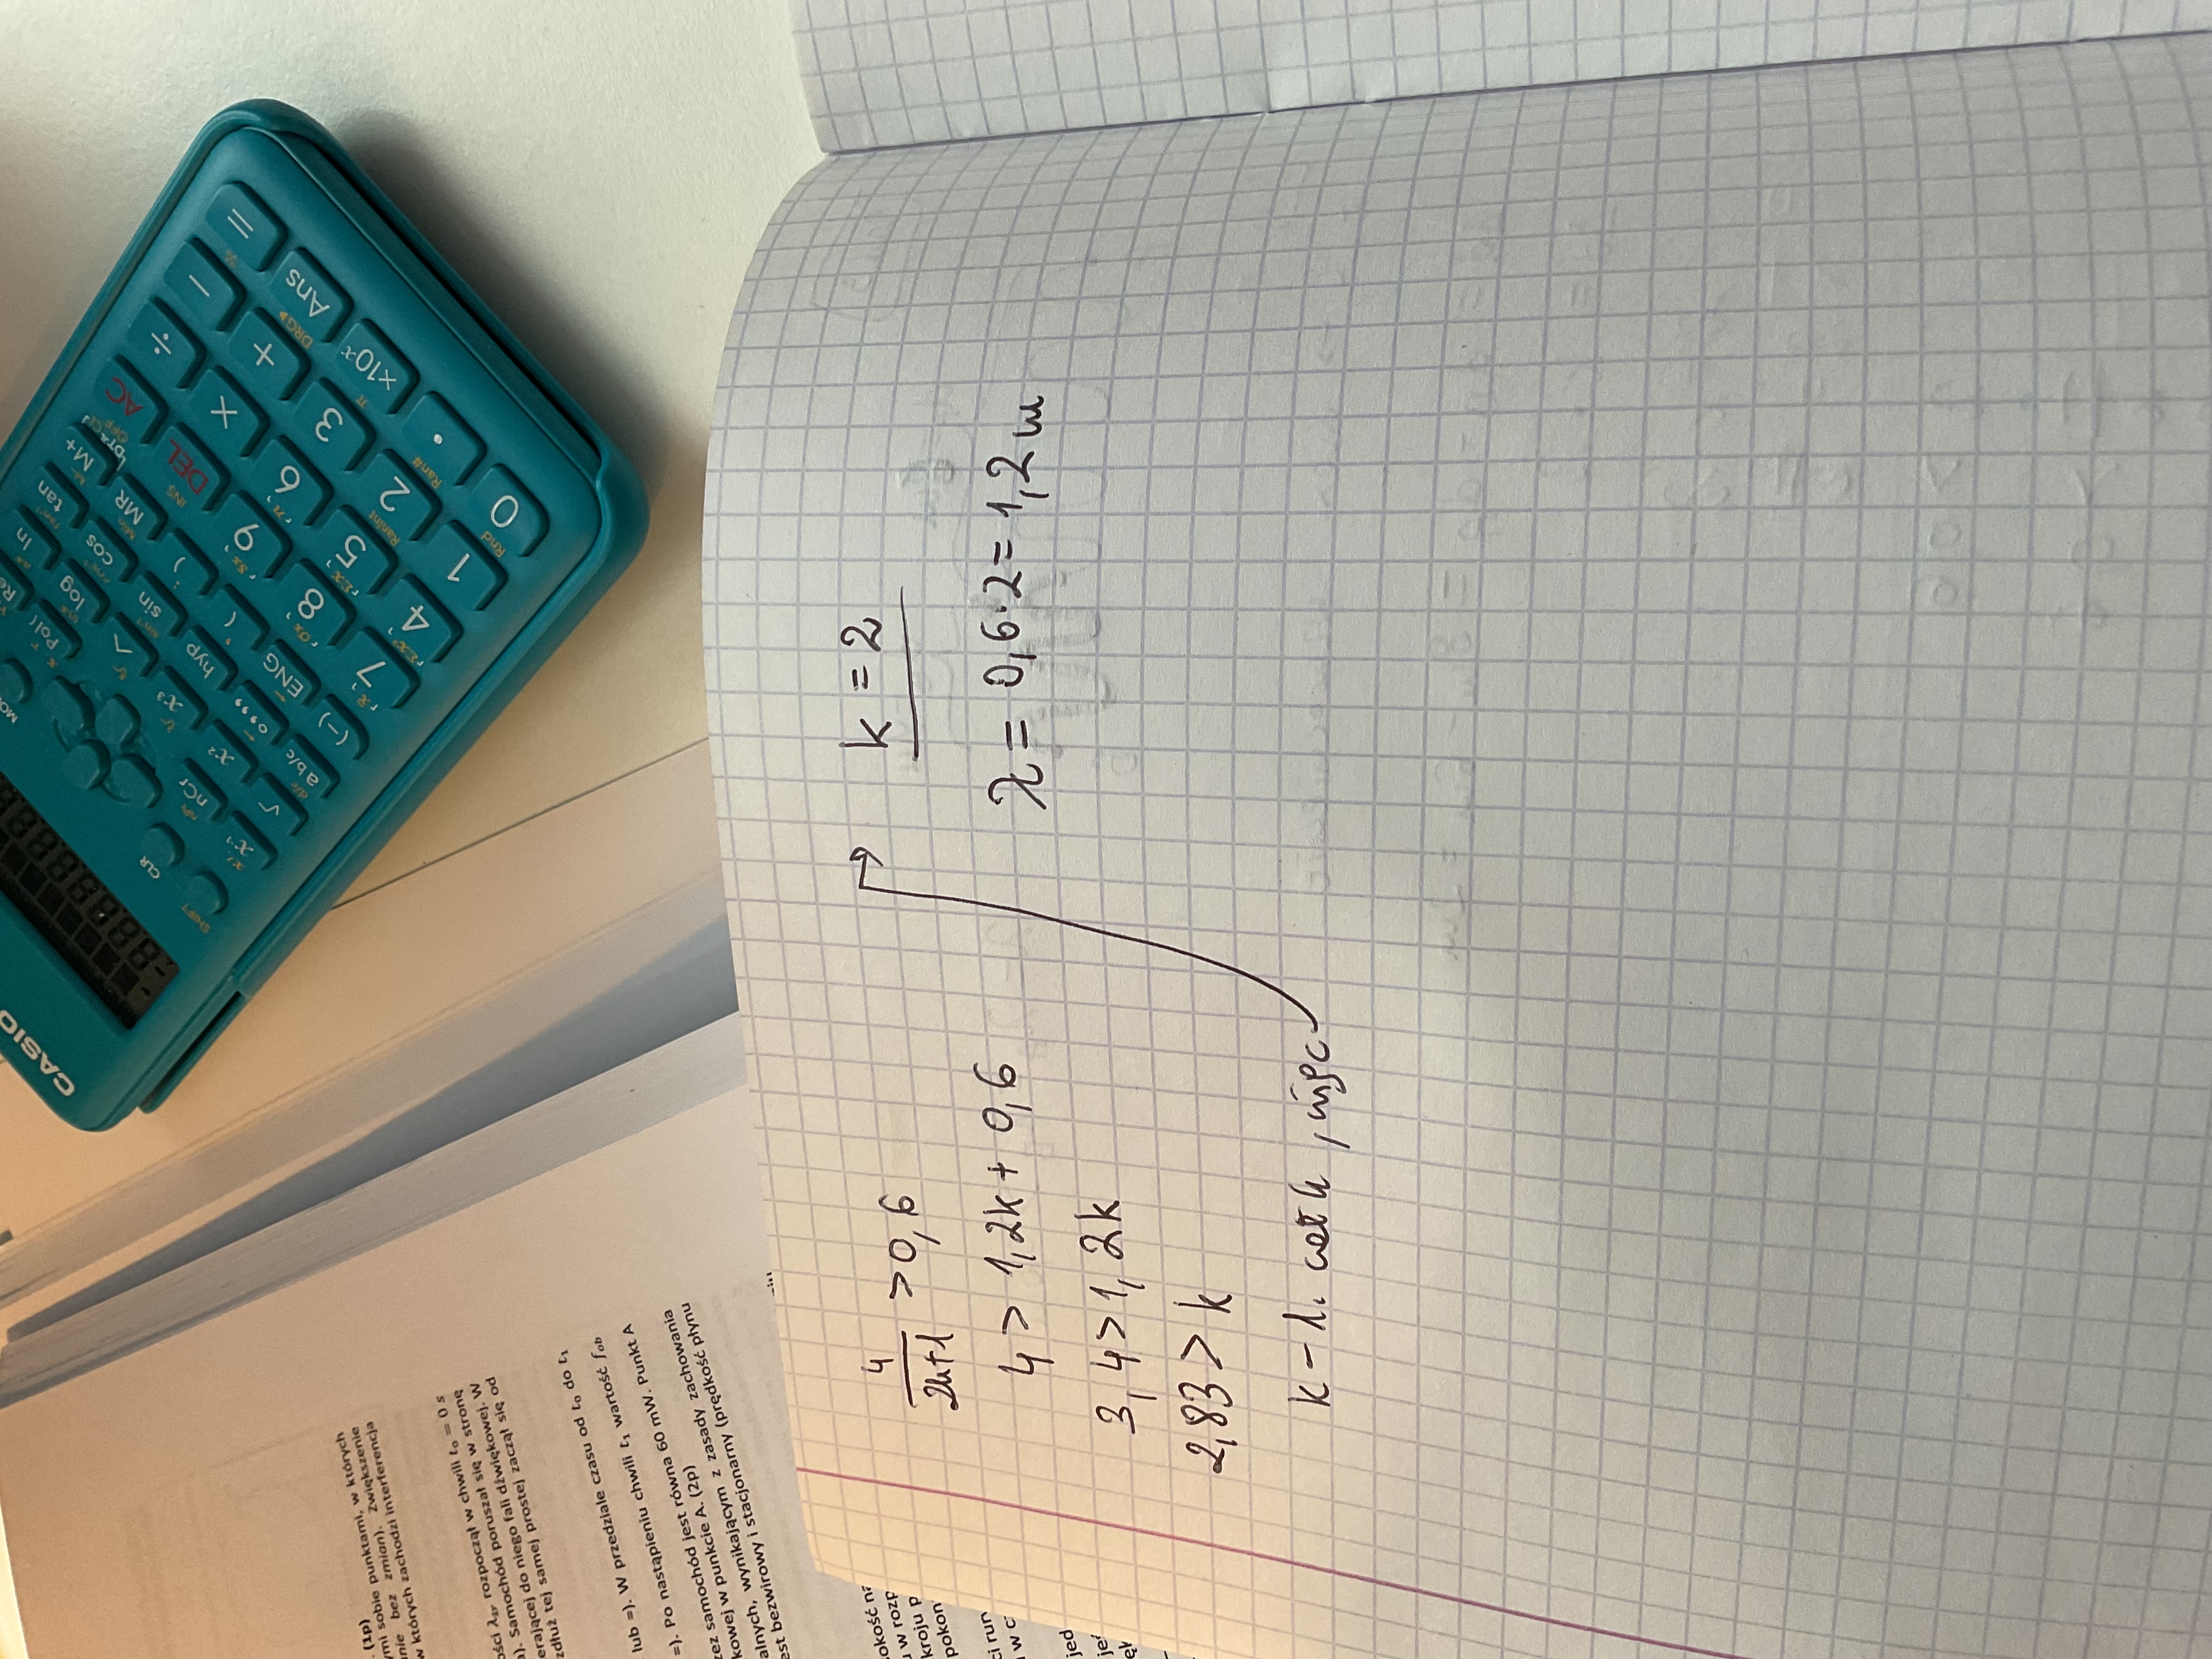 4
2k+1 > 0,6
4 > 1,2k + 0,6
3,4 > 1,2k
2,83 > k
k - l. całk, więc
k = 2
λ = 0,6 · 2 = 1,2 m
(1p)
mi sobie punktami, w których
bez zmian). Zwiększenie
w których zachodzi interferencja
rozpoczął w chwili t₀ = 0 s
Samochód poruszał się w stronę
erającej do niego fali dźwiękowej. W
dłuż tej samej prostej zaczął się od
lub =). W przedziale czasu od t₀ do t₁
=). Po nastąpieniu chwili t₁ wartość f ob
zez samochód jest równa 60 mW. Punkt A
kowej w punkcie A. (2p)
alnych, wynikającym z zasady zachowania
est bezwirowy i stacjonarny (prędkość płynu
CASIO
SHIFT
CLR
x⁻¹
nCr
Pol(
√
x²
x³
^
log
ln
a b/c
hyp
sin
cos
tan
(-)
ENG
(
)
MR
M+
7
8
9
DEL
AC
4
5
6
×
÷
1
2
3
+
−
0
.
×10ˣ
Ans
=